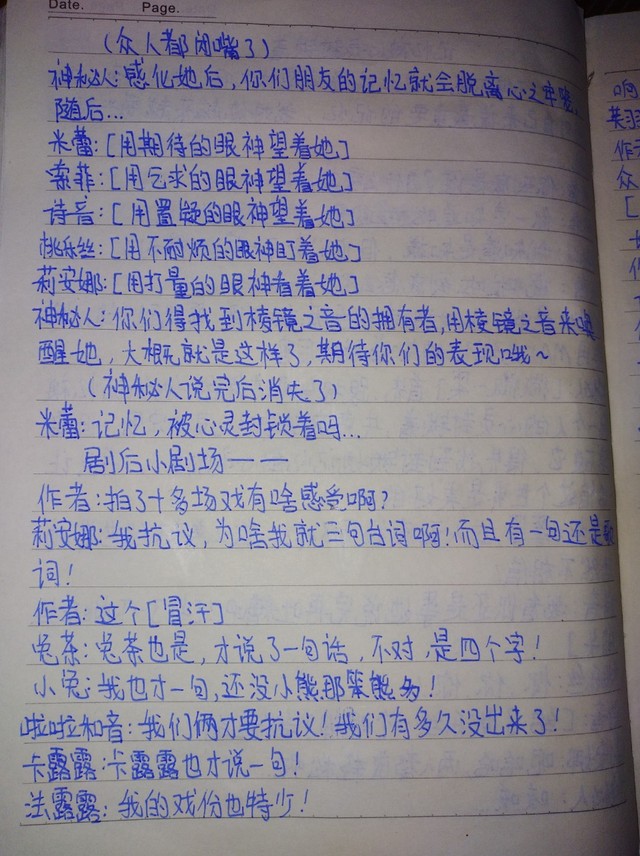 Date.    Page.
(众人都闭嘴了)
神秘人:感化她后,你们朋友的记忆就会脱离心之牢笼,
随后...
米蕾:[用期待的眼神望着她]
索菲:[用乞求的眼神望着她]
诗音:[用置疑的眼神望着她]
桃乐丝:[用不耐烦的眼神盯着她]
莉安娜:[用打量的眼神看着她]
神秘人:你们得找到棱镜之音的拥有者,用棱镜之音来唤
醒她,大概就是这样了,期待你们的表现哦~
(神秘人说完后消失了)
米蕾:记忆,被心灵封锁着吗...
剧后小剧场——
作者:拍了十多场戏有啥感受啊?
莉安娜:我抗议,为啥我就三句台词啊!而且有一句还是歌
词!
作者:这个[冒汗]
兔茶:兔茶也是,才说了一句话,不对,是四个字!
小兔:我也才一句,还没小熊那笨熊多!
啦啦和音:我们俩才要抗议!我们有多久没出来了!
卡露露:卡露露也才说一句!
法露露:我的戏份也特少!
响
作
众
[